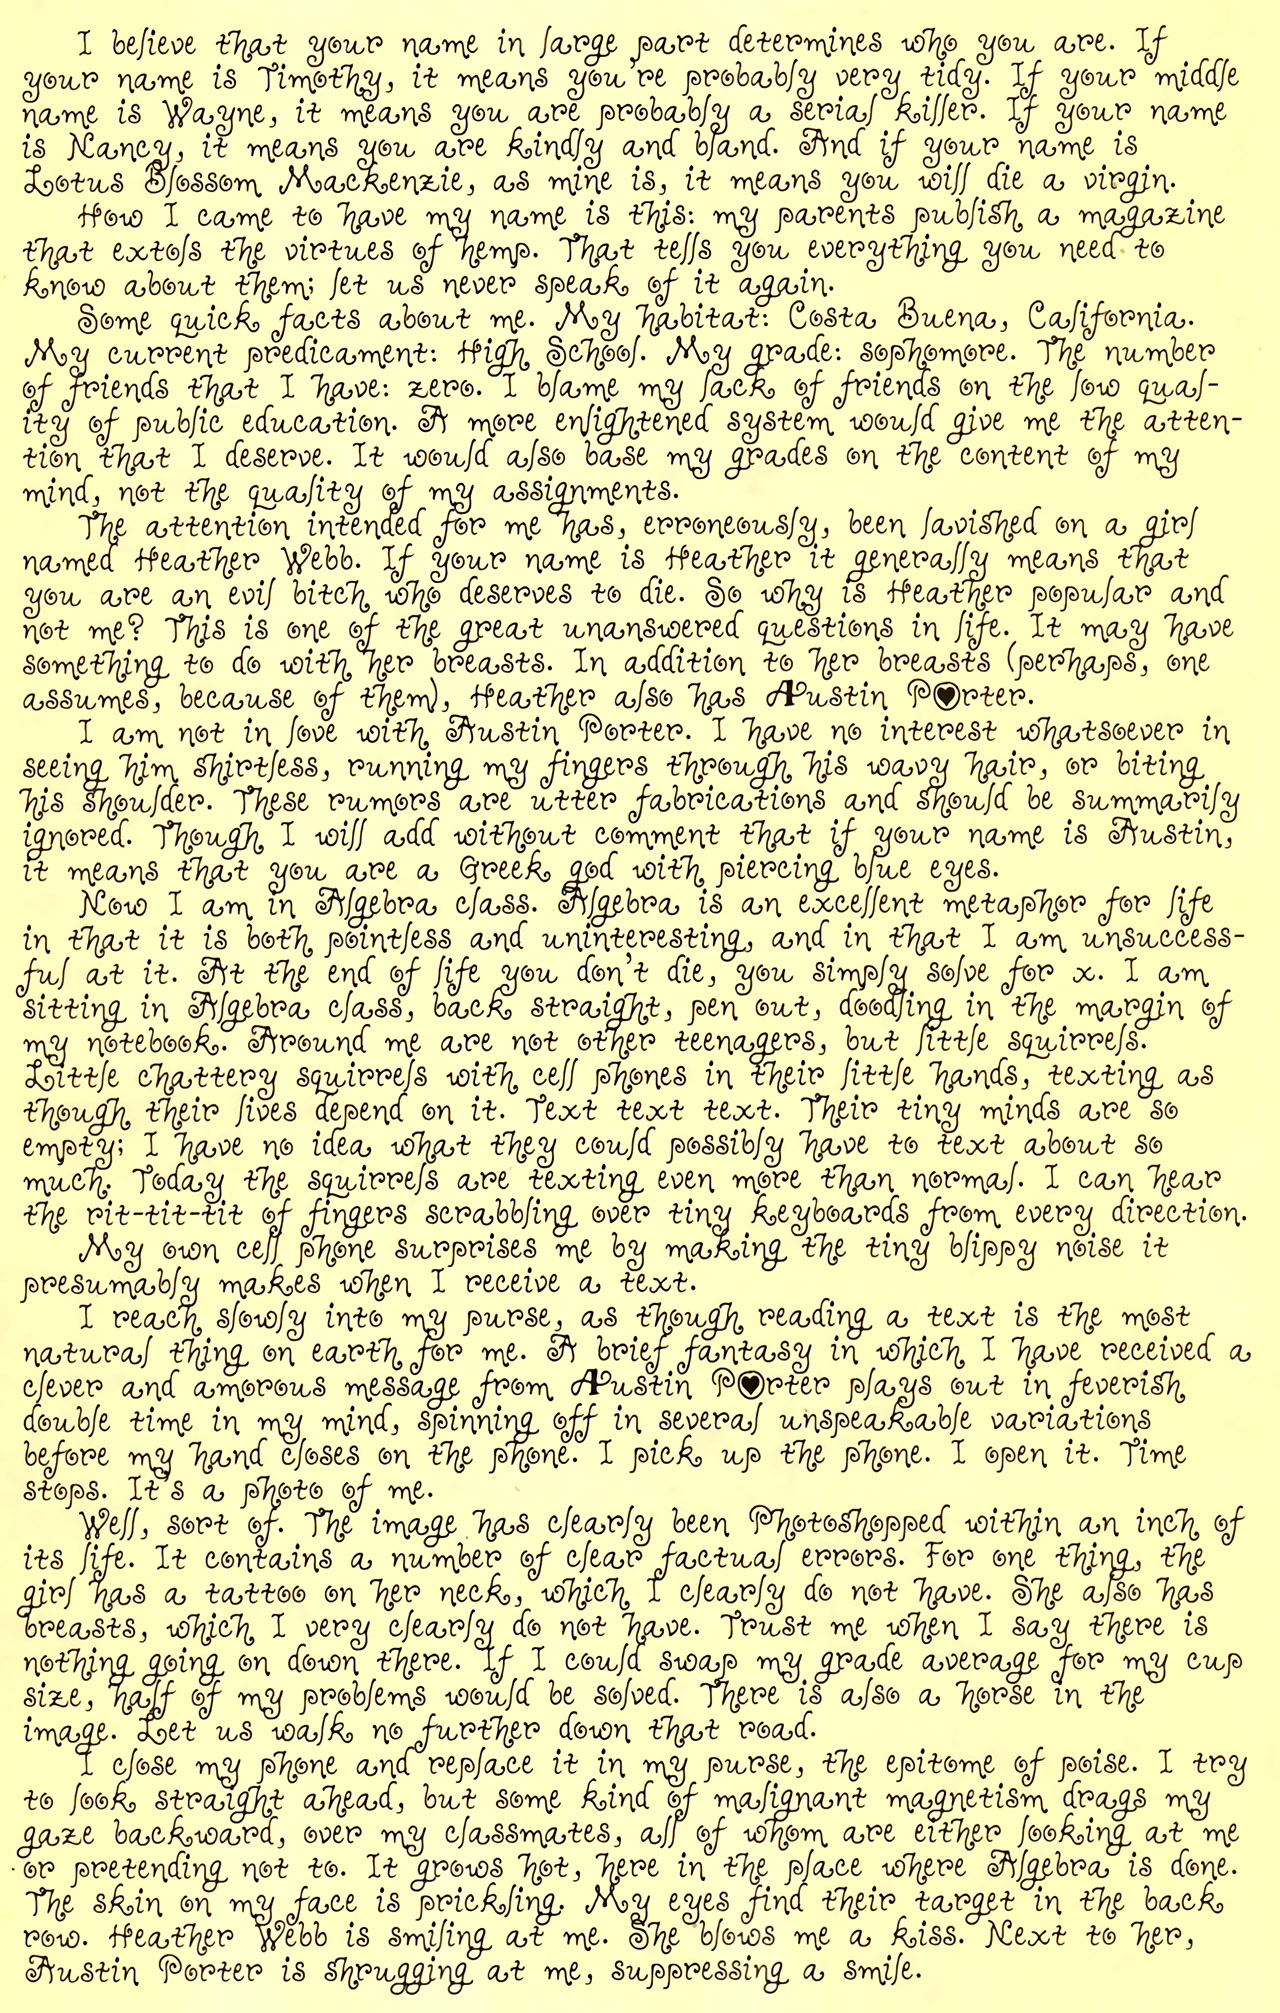 I believe that your name in large part determines who you are. If
your name is Timothy, it means you're probably very tidy. If your middle
name is Wayne, it means you are probably a serial killer. If your name
is Nancy, it means you are kindly and bland. And if your name is
Lotus Blossom Mackenzie, as mine is, it means you will die a virgin.
How I came to have my name is this: my parents publish a magazine
that extols the virtues of hemp. That tells you everything you need to
know about them; let us never speak of it again.
Some quick facts about me. My habitat: Costa Buena, California.
My current predicament: High School. My grade: sophomore. The number
of friends that I have: zero. I blame my lack of friends on the low qual-
ity of public education. A more enlightened system would give me the atten-
tion that I deserve. It would also base my grades on the content of my
mind, not the quality of my assignments.
The attention intended for me has, erroneously, been lavished on a girl
named Heather Webb. If your name is Heather it generally means that
you are an evil bitch who deserves to die. So why is Heather popular and
not me? This is one of the great unanswered questions in life. It may have
something to do with her breasts. In addition to her breasts (perhaps, one
assumes, because of them), Heather also has Austin P♥rter.
I am not in love with Austin Porter. I have no interest whatsoever in
seeing him shirtless, running my fingers through his wavy hair, or biting
his shoulder. These rumors are utter fabrications and should be summarily
ignored. Though I will add without comment that if your name is Austin,
it means that you are a Greek god with piercing blue eyes.
Now I am in Algebra class. Algebra is an excellent metaphor for life
in that it is both pointless and uninteresting, and in that I am unsuccess-
ful at it. At the end of life you don't die, you simply solve for x. I am
sitting in Algebra class, back straight, pen out, doodling in the margin of
my notebook. Around me are not other teenagers, but little squirrels.
Little chattery squirrels with cell phones in their little hands, texting as
though their lives depend on it. Text text text. Their tiny minds are so
empty; I have no idea what they could possibly have to text about so
much. Today the squirrels are texting even more than normal. I can hear
the rit-tit-tit of fingers scrabbling over tiny keyboards from every direction.
My own cell phone surprises me by making the tiny blippy noise it
presumably makes when I receive a text.
I reach slowly into my purse, as though reading a text is the most
natural thing on earth for me. A brief fantasy in which I have received a
clever and amorous message from Austin P♥rter plays out in feverish
double time in my mind, spinning off in several unspeakable variations
before my hand closes on the phone. I pick up the phone. I open it. Time
stops. It's a photo of me.
Well, sort of. The image has clearly been Photoshopped within an inch of
its life. It contains a number of clear factual errors. For one thing, the
girl has a tattoo on her neck, which I clearly do not have. She also has
breasts, which I very clearly do not have. Trust me when I say there is
nothing going on down there. If I could swap my grade average for my cup
size, half of my problems would be solved. There is also a horse in the
image. Let us walk no further down that road.
I close my phone and replace it in my purse, the epitome of poise. I try
to look straight ahead, but some kind of malignant magnetism drags my
gaze backward, over my classmates, all of whom are either looking at me
or pretending not to. It grows hot, here in the place where Algebra is done.
The skin on my face is prickling. My eyes find their target in the back
row. Heather Webb is smiling at me. She blows me a kiss. Next to her,
Austin Porter is shrugging at me, suppressing a smile.